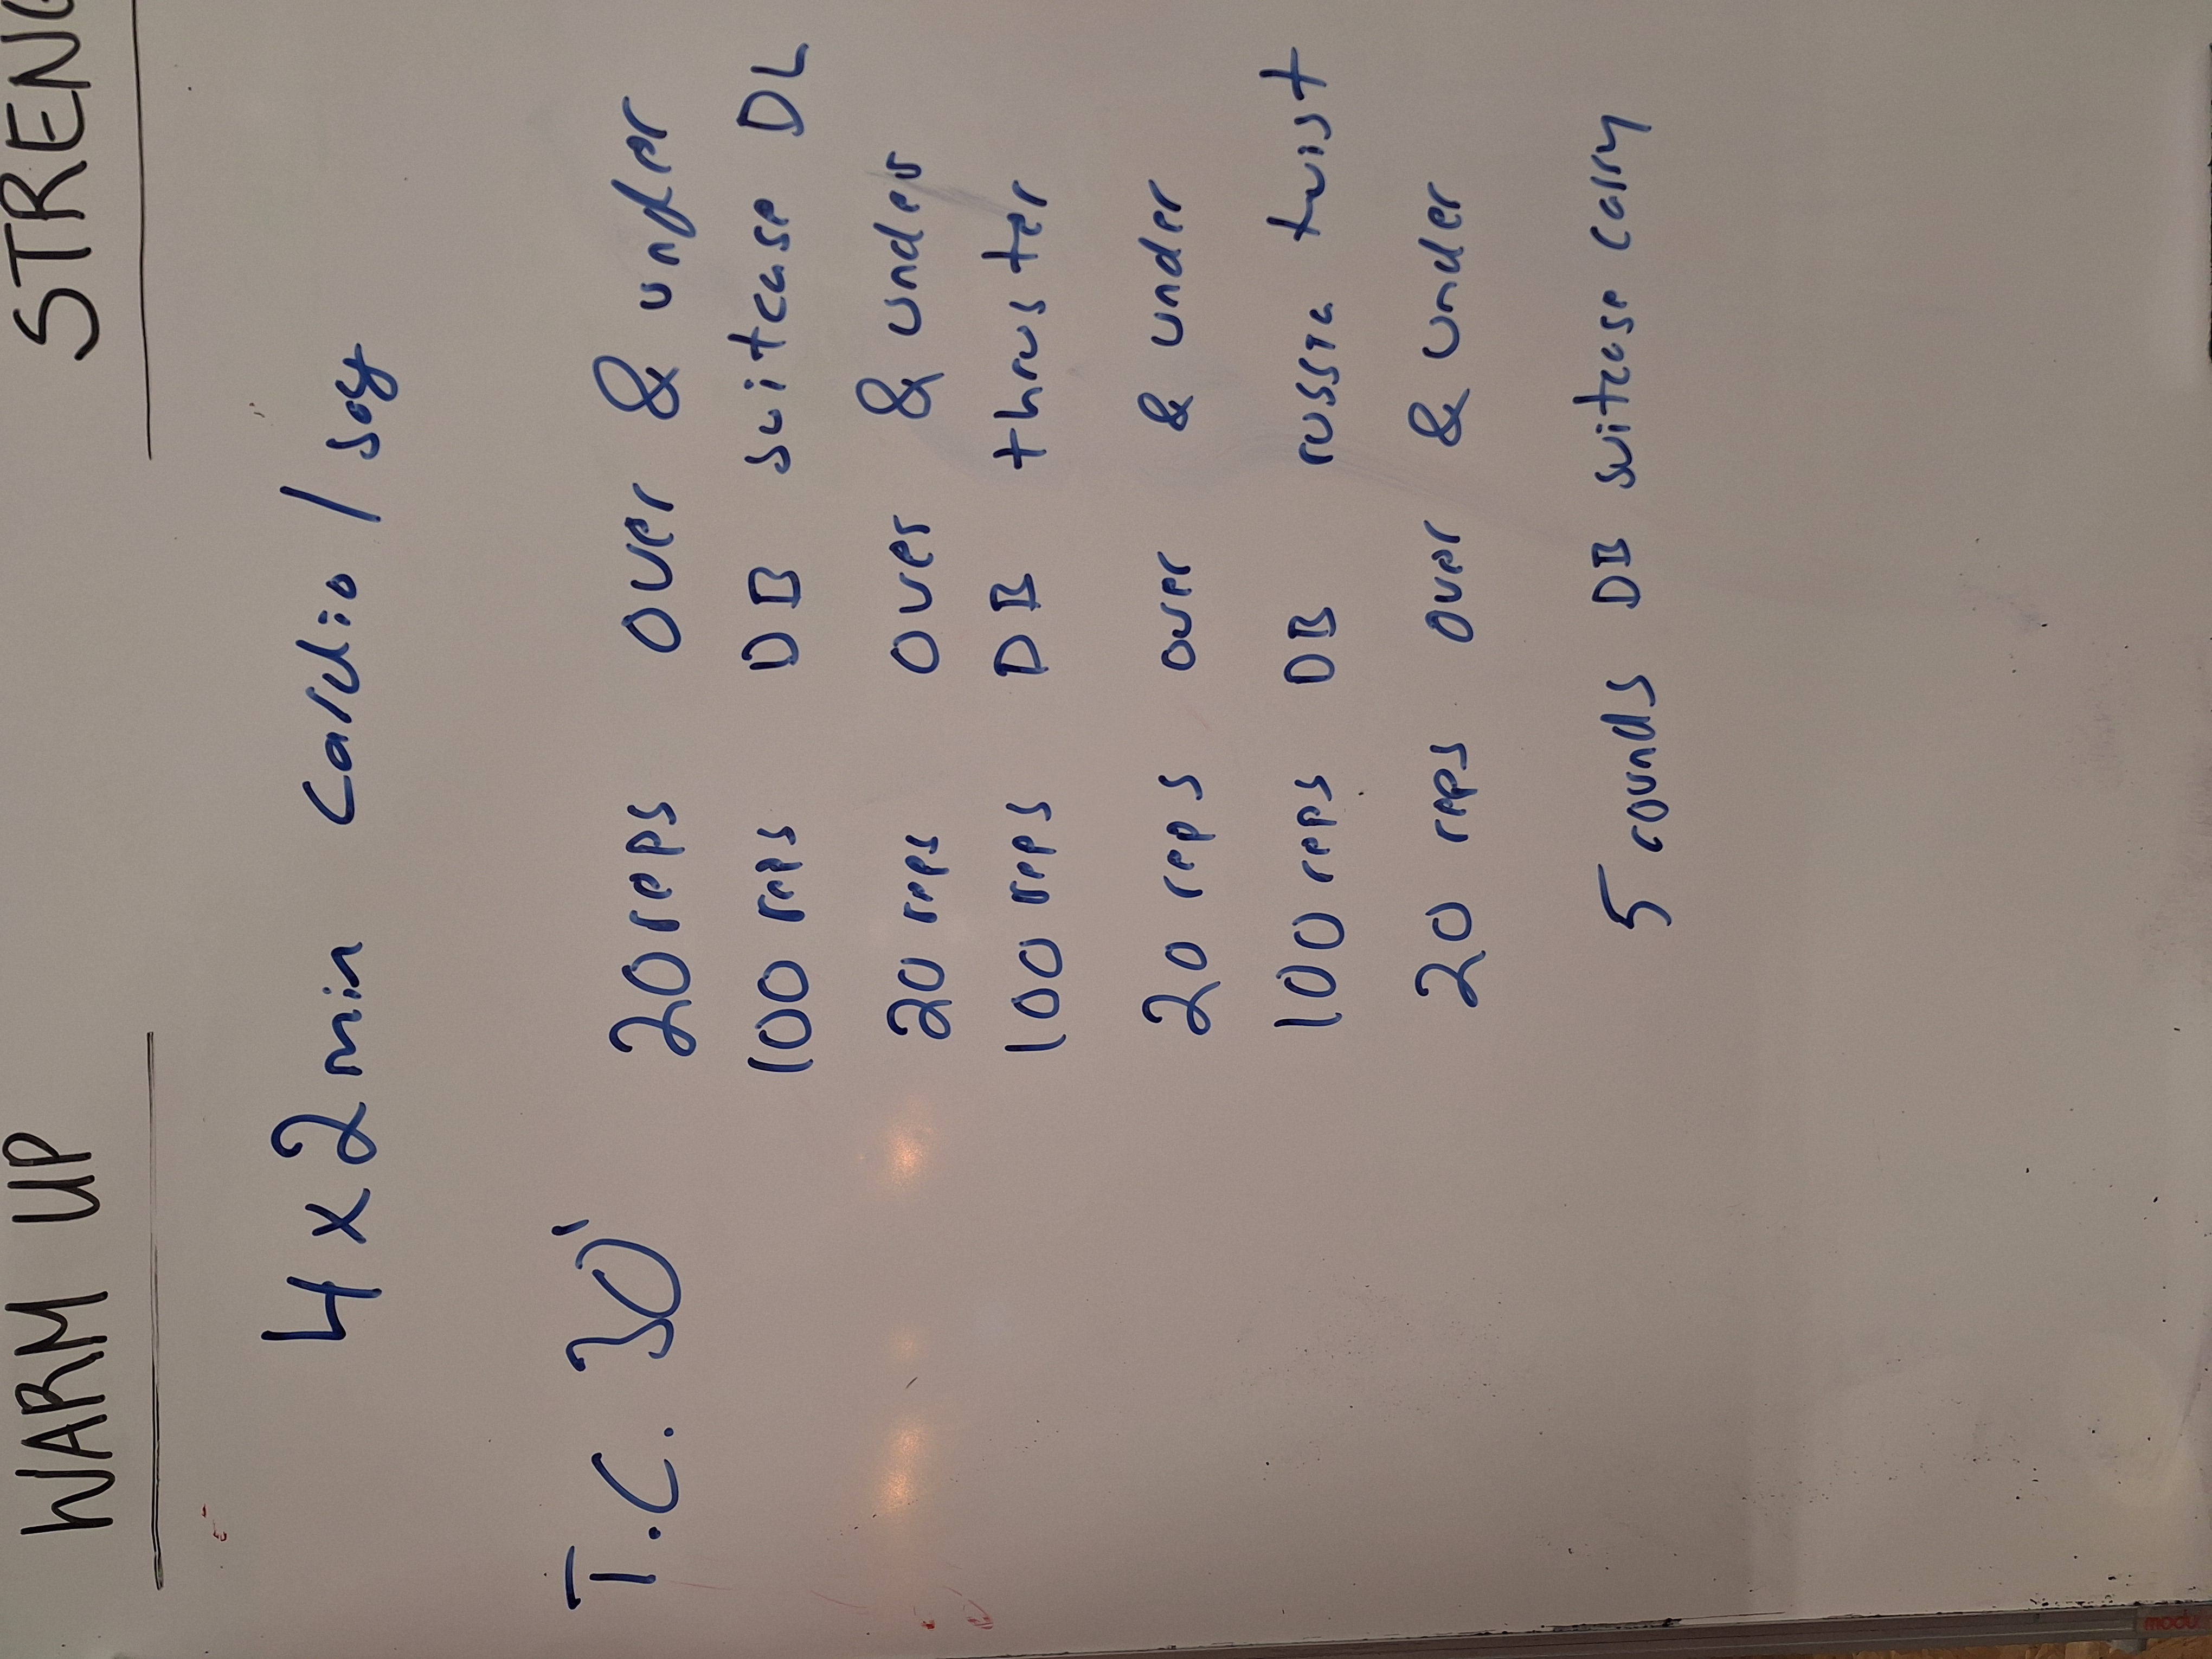 WARM UP
STRENG
4 x 2 min Cardio / Jog
T.C. 30'
20 reps over & under
100 reps DB suitcase DL
20 reps over & under
100 reps DB thruster
20 reps over & under
100 reps DB russia twist
20 reps over & under
5 rounds DB suitcase carry
modu